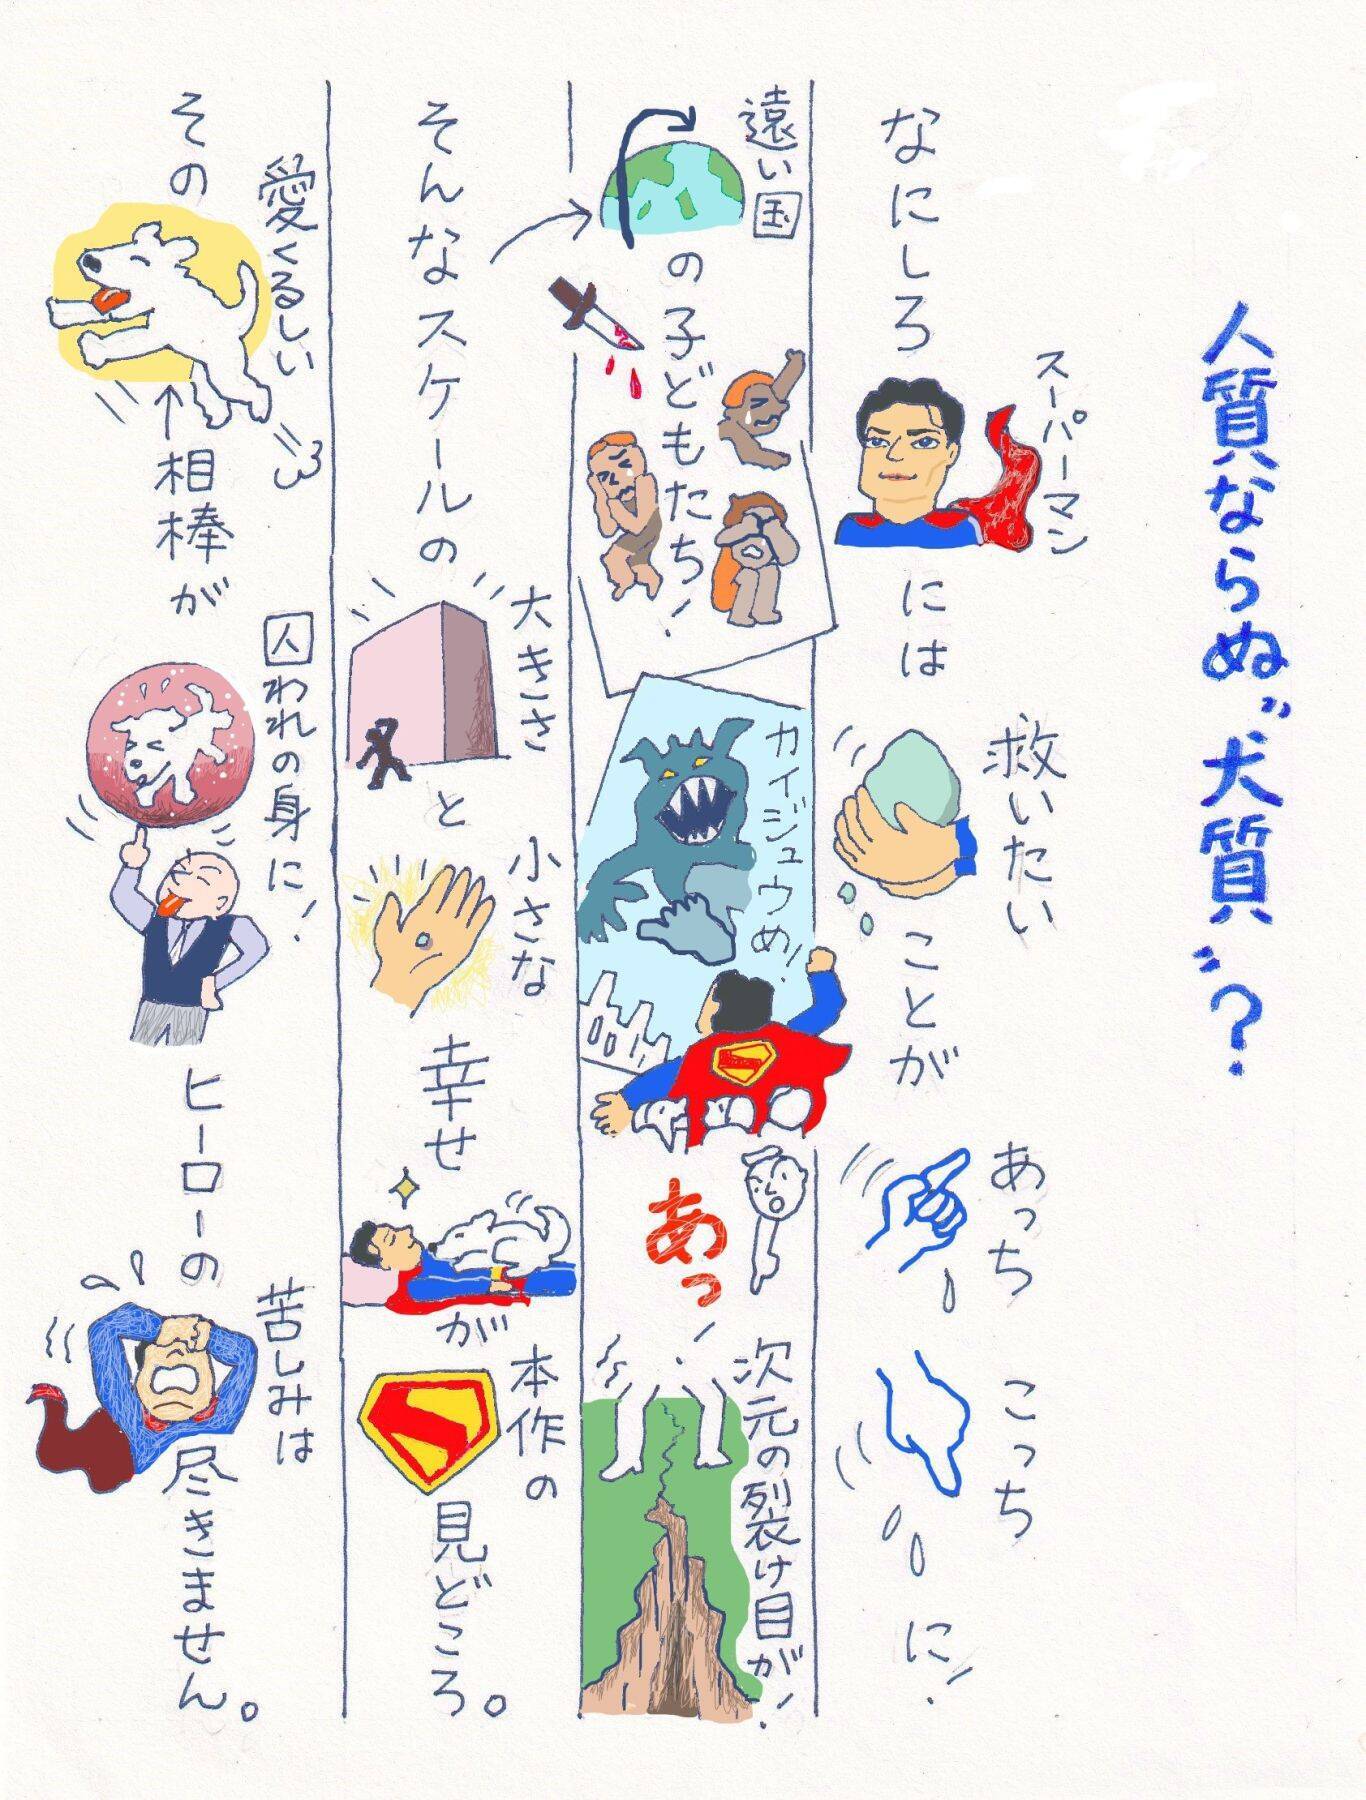 人質ならぬ〝犬質〟?
なにしろ
スーパーマン
には
救いたい
ことが
あっち
こっち
に!
遠い国
の子どもたち!
カイジュウめ!
あっ!
次元の裂け目が!
そんなスケールの
大きさ
と
小さな
幸せ
が
本作の
見どころ。
その
愛くるしい
相棒が
囚われの身に!
ヒーローの
苦しみは
尽きません。